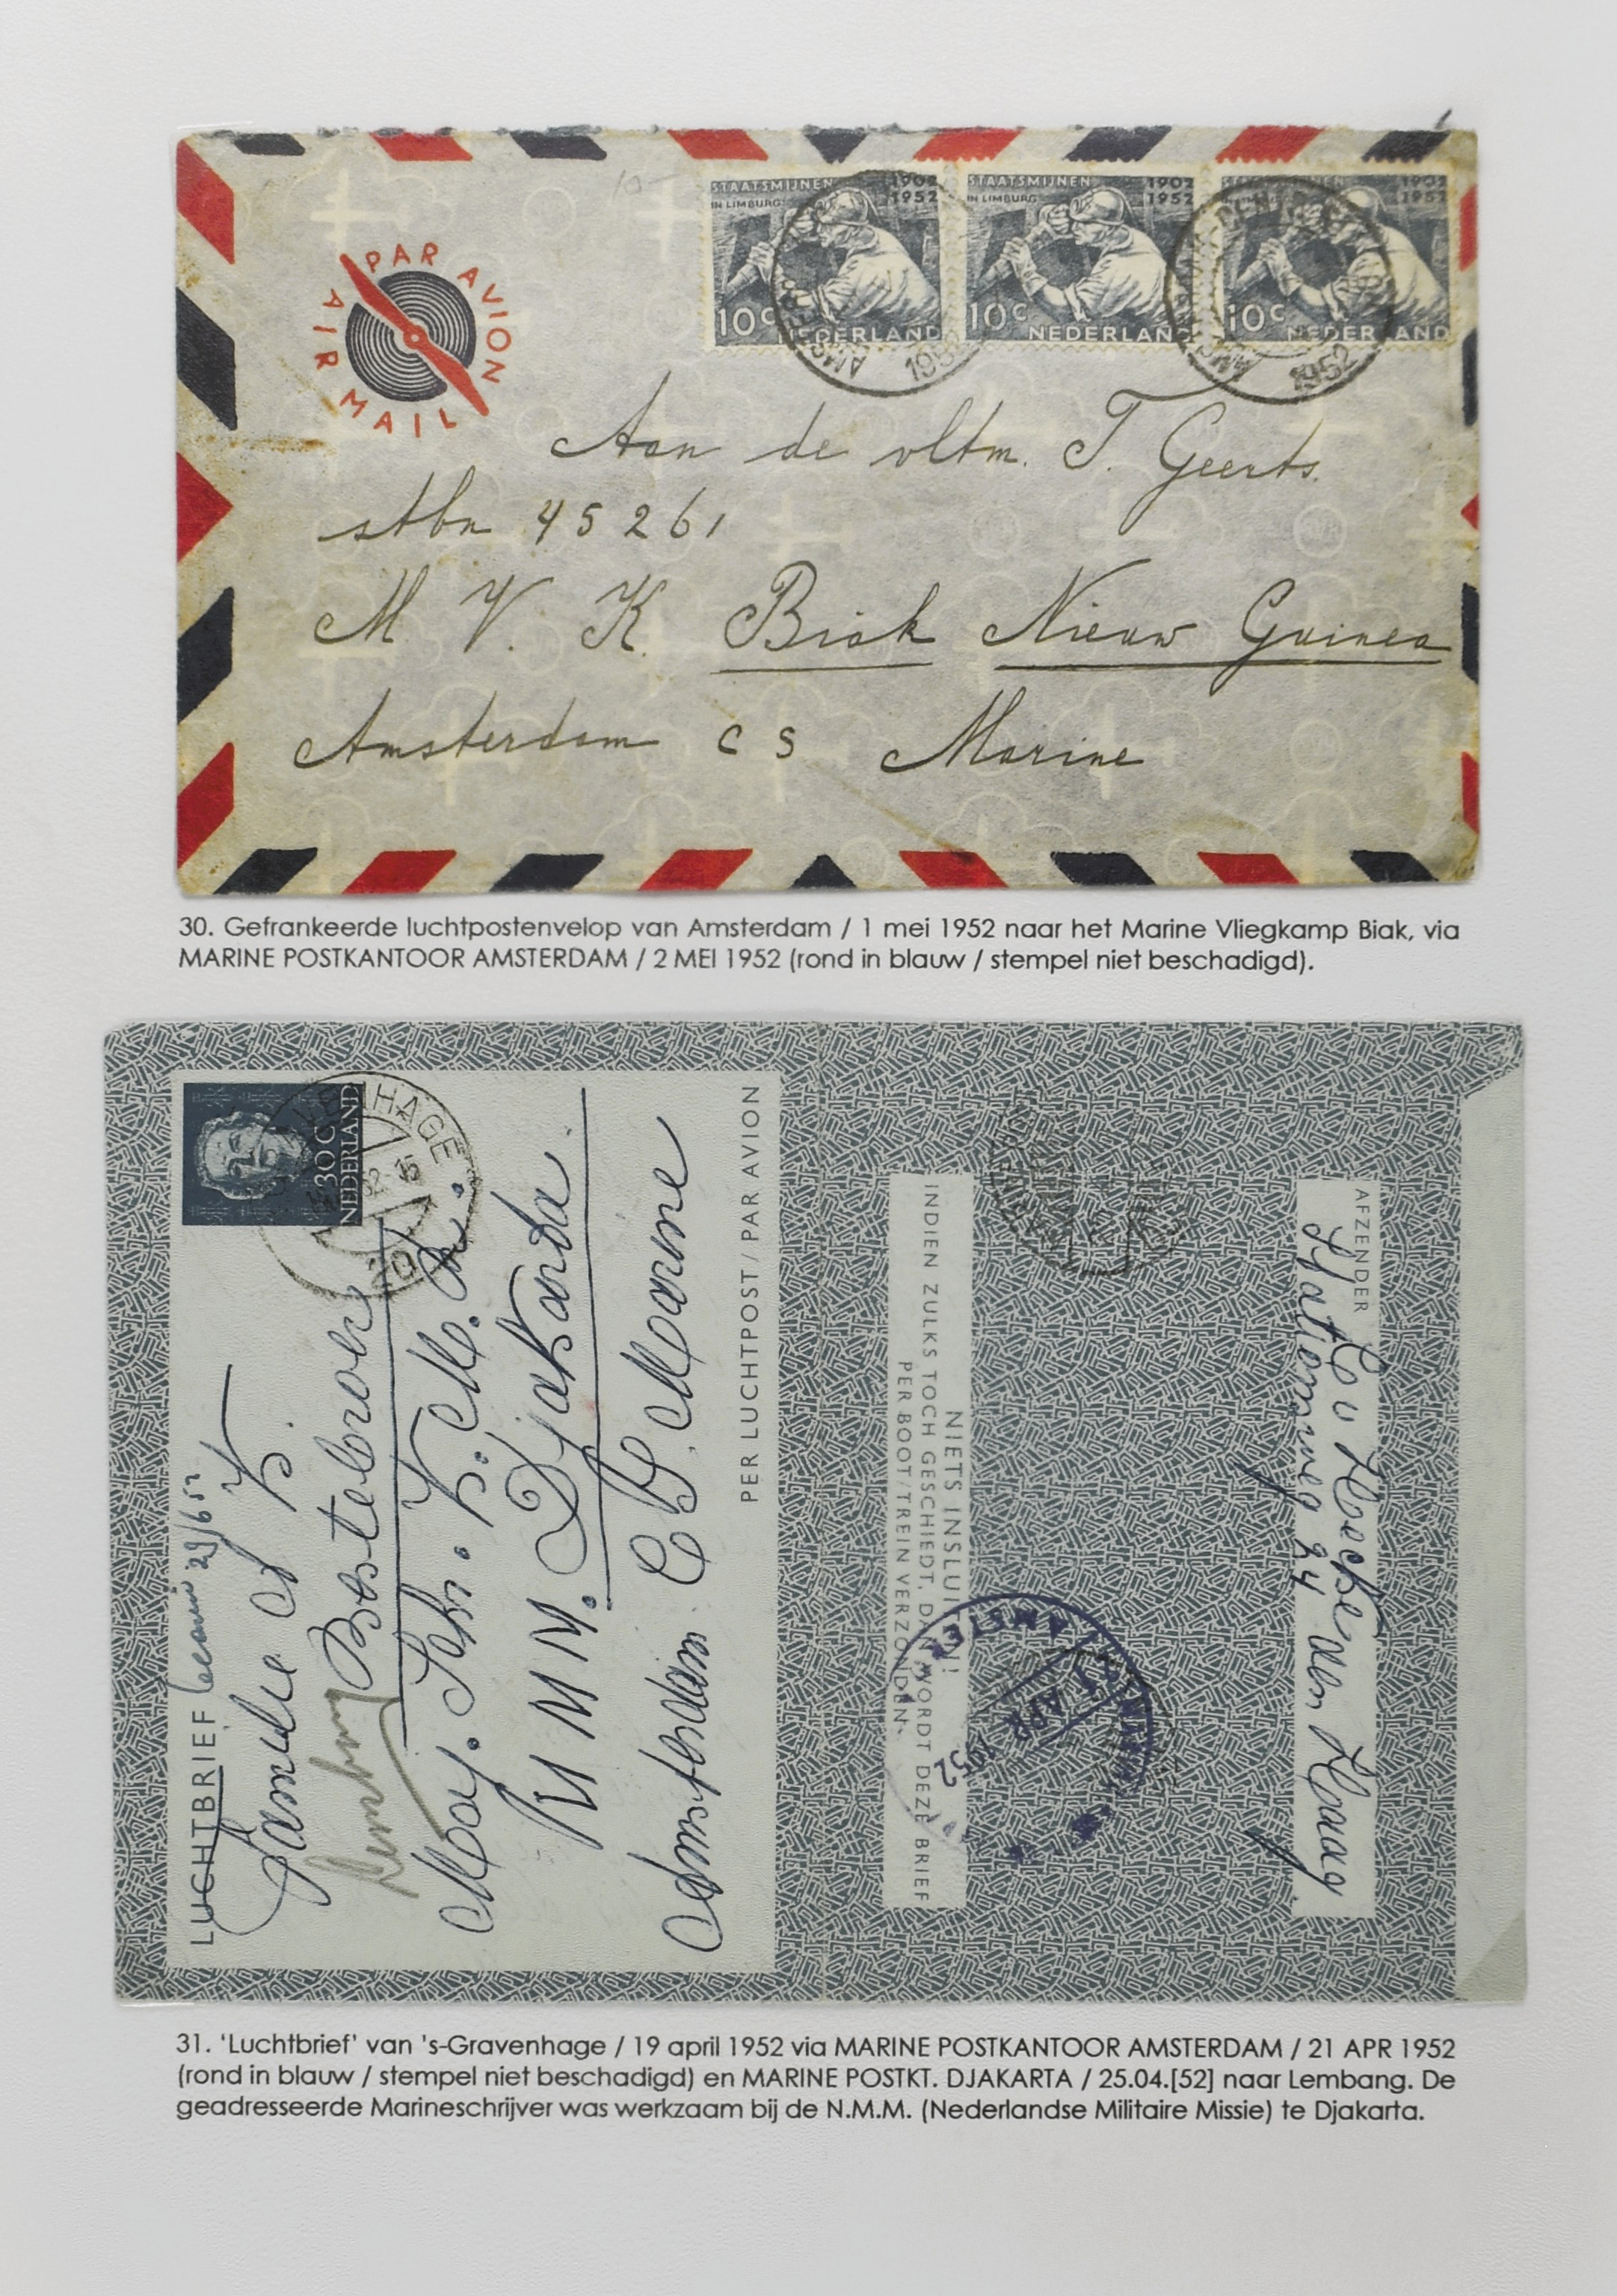 PAR AVION
AIR MAIL
STAATSMIJNEN 1902
IN LIMBURG 1952
10c NEDERLAND
STAATSMIJNEN 1902
IN LIMBURG 1952
10c NEDERLAND
1902
1952
10c NEDERLAND
1952
1952
Aan de vltm. T. Geerts.
stbn 45261
M. V. K. Biak Nieuw Guinea
Amsterdam CS Marine
30. Gefrankeerde luchtpostenvelop van Amsterdam / 1 mei 1952 naar het Marine Vliegkamp Biak, via
MARINE POSTKANTOOR AMSTERDAM / 2 MEI 1952 (rond in blauw / stempel niet beschadigd).
LUCHTBRIEF
30 C
NEDERLAND
Djakarta
Amsterdam CS. Marine
PER LUCHTPOST / PAR AVION
NIETS INSLUITEN!
INDIEN ZULKS TOCH GESCHIEDT, DAN WORDT DEZE BRIEF
PER BOOT/TREIN VERZONDEN.
APR
1952
AFZENDER
Den Haag
31. 'Luchtbrief' van 's-Gravenhage / 19 april 1952 via MARINE POSTKANTOOR AMSTERDAM / 21 APR 1952
(rond in blauw / stempel niet beschadigd) en MARINE POSTKT. DJAKARTA / 25.04.[52] naar Lembang. De
geadresseerde Marineschrijver was werkzaam bij de N.M.M. (Nederlandse Militaire Missie) te Djakarta.